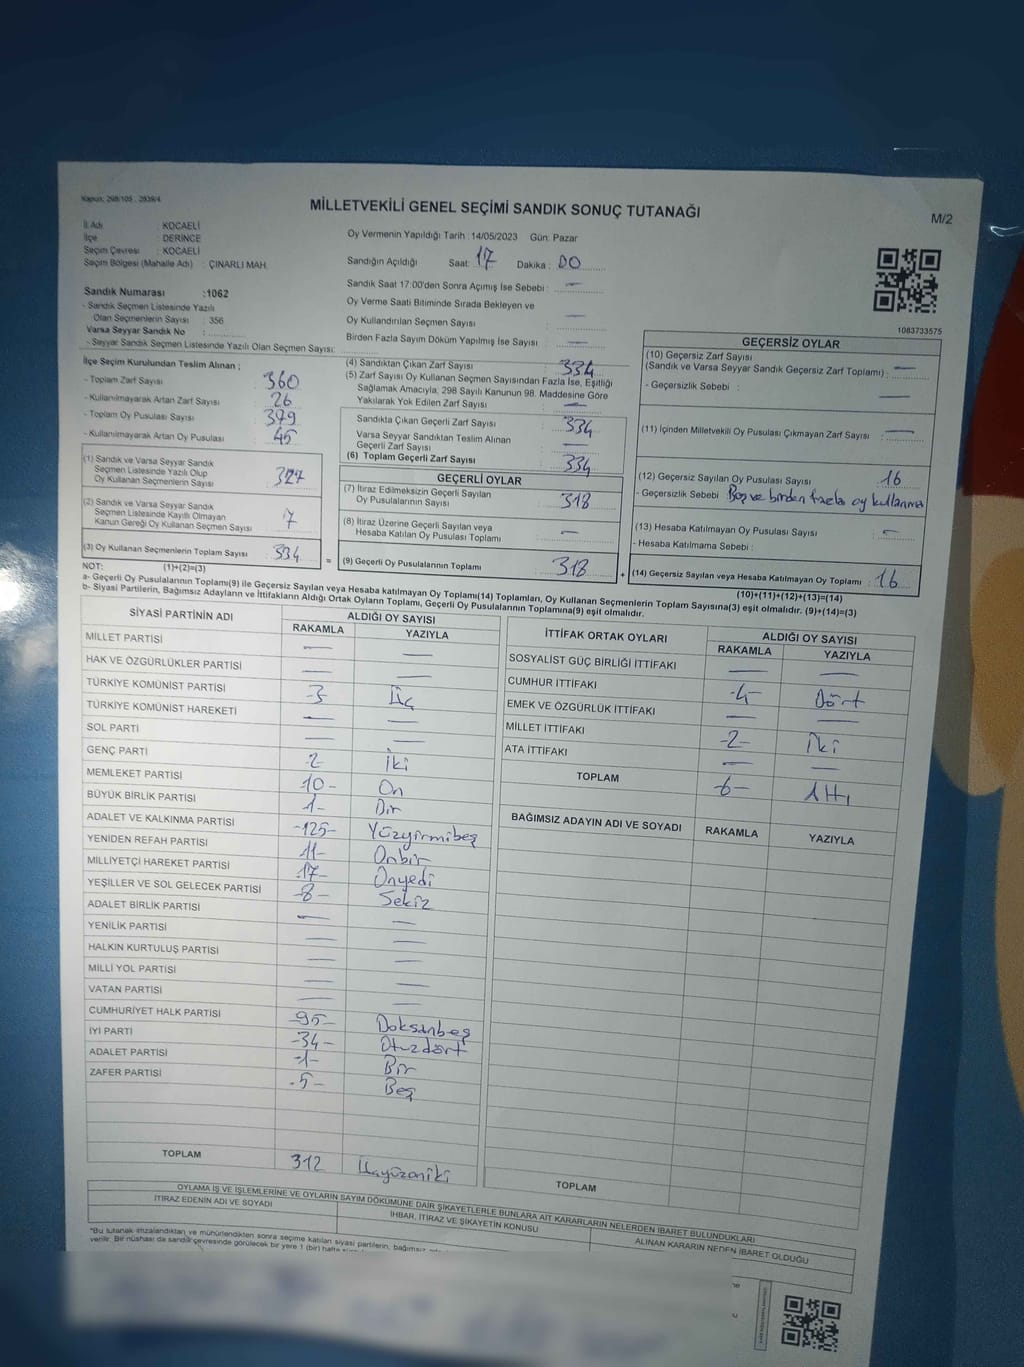 Kapun: 298/105 , 2839/4
MİLLETVEKİLİ GENEL SEÇİMİ SANDIK SONUÇ TUTANAĞI
M/2
İl Adı : KOCAELİ
İlçe : DERİNCE
Seçim Çevresi : KOCAELİ
Seçim Bölgesi (Mahalle Adı) : ÇINARLI MAH.
Sandık Numarası :1062
- Sandık Seçmen Listesinde Yazılı
Olan Seçmenlerin Sayısı : 356
Varsa Seyyar Sandık No :
- Seyyar Sandık Seçmen Listesinde Yazılı Olan Seçmen Sayısı:
Oy Vermenin Yapıldığı Tarih : 14/05/2023 Gün: Pazar
Sandığın Açıldığı Saat: 17 Dakika : 00
Sandık Saat 17:00'den Sonra Açımış İse Sebebi : —
Oy Verme Saati Bitiminde Sırada Bekleyen ve
Oy Kullandırılan Seçmen Sayısı —
Birden Fazla Sayım Döküm Yapılmış İse Sayısı : —
1083733575
İlçe Seçim Kurulundan Teslim Alınan ;
- Toplam Zarf Sayısı : 360
- Kullanılmayarak Artan Zarf Sayısı : 26
- Toplam Oy Pusulası Sayısı : 379
- Kullanılmayarak Artan Oy Pusulası : 45
(1) Sandık ve Varsa Seyyar Sandık
Seçmen Listesinde Yazılı Olup
Oy Kullanan Seçmenlerin Sayısı : 327
(2) Sandık ve Varsa Seyyar Sandık
Seçmen Listesinde Kayıtlı Olmayan
Kanun Gereği Oy Kullanan Seçmen Sayısı : 7
(3) Oy Kullanan Seçmenlerin Toplam Sayısı : 334
(4) Sandıktan Çıkan Zarf Sayısı : 334
(5) Zarf Sayısı Oy Kullanan Seçmen Sayısından Fazla İse, Eşitliği
Sağlamak Amacıyla, 298 Sayılı Kanunun 98. Maddesine Göre
Yakılarak Yok Edilen Zarf Sayısı : —
Sandıkta Çıkan Geçerli Zarf Sayısı : 334
Varsa Seyyar Sandıktan Teslim Alınan
Geçerli Zarf Sayısı : —
(6) Toplam Geçerli Zarf Sayısı : 334
GEÇERLİ OYLAR
(7) İtiraz Edilmeksizin Geçerli Sayılan
Oy Pusulalarının Sayısı : 318
(8) İtiraz Üzerine Geçerli Sayılan veya
Hesaba Katılan Oy Pusulası Toplamı : —
= (9) Geçerli Oy Pusulalarının Toplamı : 318
GEÇERSİZ OYLAR
(10) Geçersiz Zarf Sayısı
(Sandık ve Varsa Seyyar Sandık Geçersiz Zarf Toplamı) : —
- Geçersizlik Sebebi : —
(11) İçinden Milletvekili Oy Pusulası Çıkmayan Zarf Sayısı : —
(12) Geçersiz Sayılan Oy Pusulası Sayısı : 16
- Geçersizlik Sebebi Boş ve birden fazla oy kullanma
(13) Hesaba Katılmayan Oy Pusulası Sayısı : —
- Hesaba Katılmama Sebebi :
+ (14) Geçersiz Sayılan veya Hesaba Katılmayan Oy Toplamı : 16
NOT: (1)+(2)=(3)
(10)+(11)+(12)+(13)=(14)
a- Geçerli Oy Pusulalarının Toplamı(9) ile Geçersiz Sayılan veya Hesaba katılmayan Oy Toplamı(14) Toplamları, Oy Kullanan Seçmenlerin Toplam Sayısına(3) eşit olmalıdır. (9)+(14)=(3)
b- Siyasi Partilerin, Bağımsız Adayların ve İttifakların Aldığı Ortak Oyların Toplamı, Geçerli Oy Pusulalarının Toplamına(9) eşit olmalıdır.
SİYASİ PARTİNİN ADI ALDIĞI OY SAYISI
RAKAMLA YAZIYLA
MİLLET PARTİSİ — —
HAK VE ÖZGÜRLÜKLER PARTİSİ — —
TÜRKİYE KOMÜNİST PARTİSİ -3- Üç
TÜRKİYE KOMÜNİST HAREKETİ — —
SOL PARTİ — —
GENÇ PARTİ 2 İki
MEMLEKET PARTİSİ -10- On
BÜYÜK BİRLİK PARTİSİ -1- Bir
ADALET VE KALKINMA PARTİSİ -125- Yüzyirmibeş
YENİDEN REFAH PARTİSİ -11- Onbir
MİLLİYETÇİ HAREKET PARTİSİ -17- Onyedi
YEŞİLLER VE SOL GELECEK PARTİSİ -8- Sekiz
ADALET BİRLİK PARTİSİ — —
YENİLİK PARTİSİ — —
HALKIN KURTULUŞ PARTİSİ — —
MİLLİ YOL PARTİSİ — —
VATAN PARTİSİ — —
CUMHURİYET HALK PARTİSİ -95- Doksanbeş
İYİ PARTİ -34- Otuzdört
ADALET PARTİSİ -1- Bir
ZAFER PARTİSİ -5- Beş
TOPLAM 312 Üçyüzoniki
İTTİFAK ORTAK OYLARI ALDIĞI OY SAYISI
RAKAMLA YAZIYLA
SOSYALİST GÜÇ BİRLİĞİ İTTİFAKI — —
CUMHUR İTTİFAKI -4- Dört
EMEK VE ÖZGÜRLÜK İTTİFAKI — —
MİLLET İTTİFAKI -2- İki
ATA İTTİFAKI — —
TOPLAM -6- Altı
BAĞIMSIZ ADAYIN ADI VE SOYADI RAKAMLA YAZIYLA
TOPLAM
OYLAMA İŞ VE İŞLEMLERİNE VE OYLARIN SAYIM DÖKÜMÜNE DAİR ŞİKAYETLERLE BUNLARA AİT KARARLARIN NELERDEN İBARET BULUNDUKLARI
İTİRAZ EDENİN ADI VE SOYADI İHBAR, İTİRAZ VE ŞİKAYETİN KONUSU ALINAN KARARIN NEDEN İBARET OLDUĞU
*Bu tutanak imzalandıktan ve mühürlendikten sonra seçime katılan siyasi partilerin, bağımsız
verilir. Bir nüshası da sandık çevresinde görülecek bir yere 1 (bir) hafta